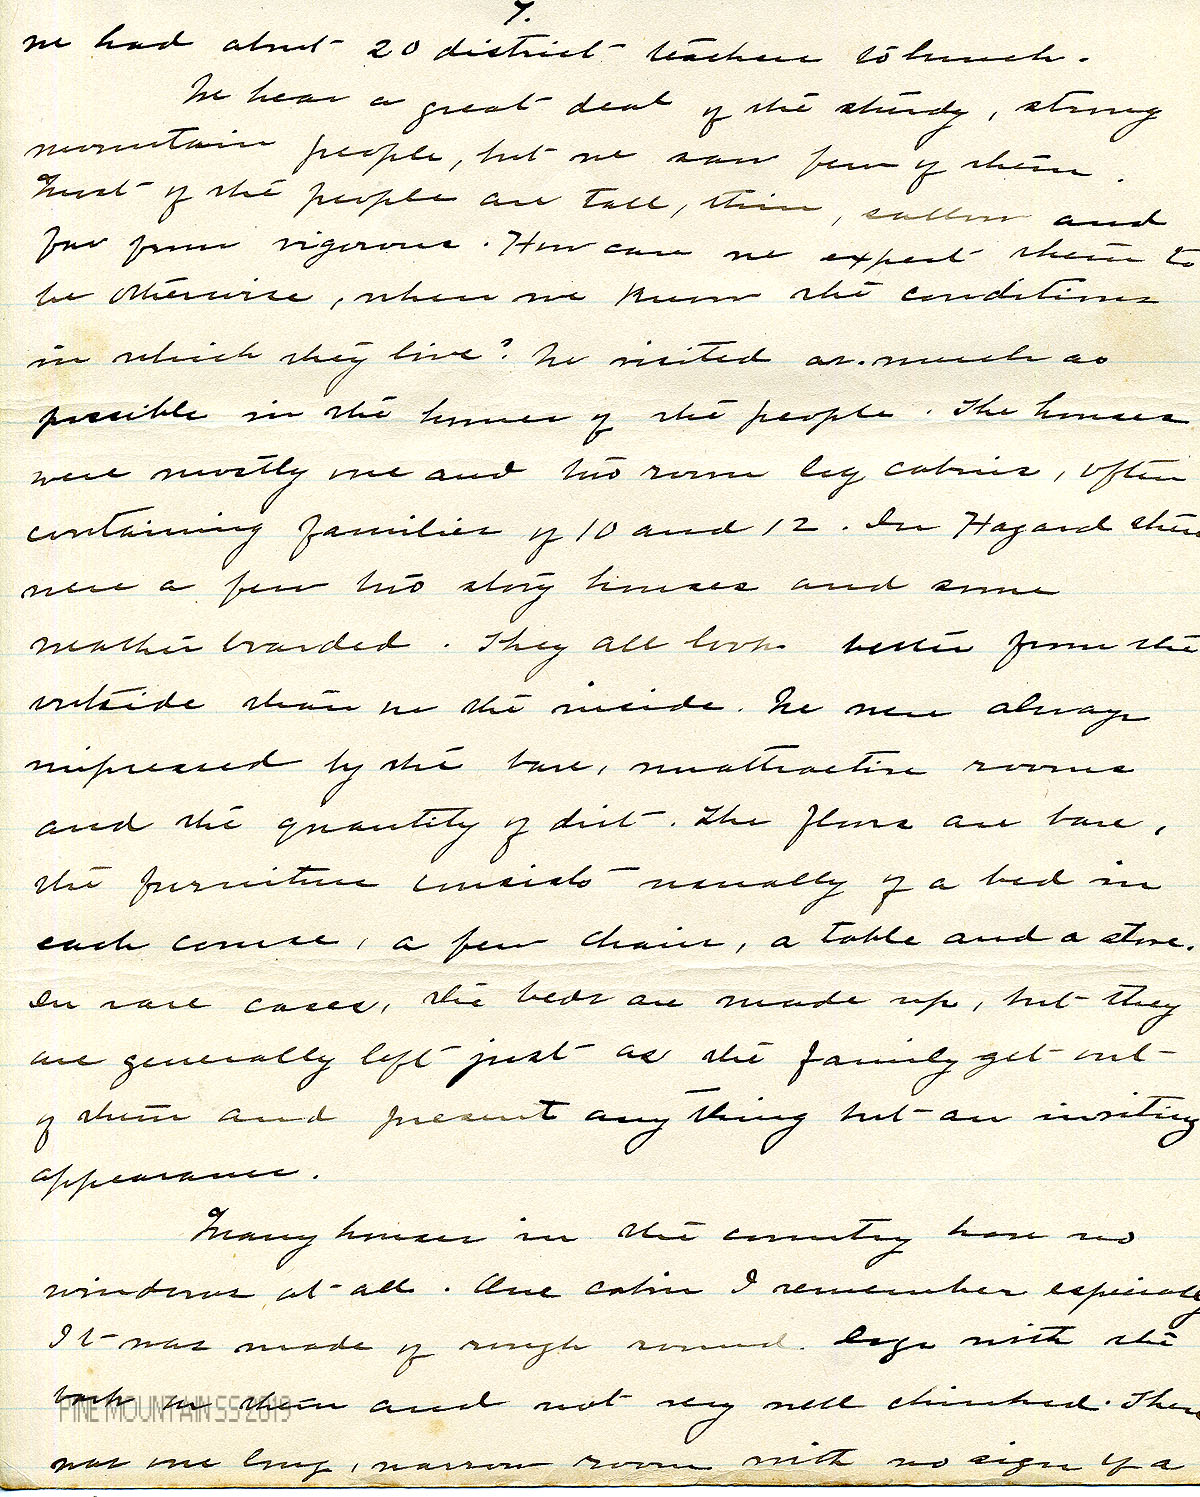 7.
we had about 20 district teachers to lunch.
We hear a great deal of the sturdy, strong
mountain people, but we saw few of them.
Most of the people are tall, thin, sallow and
far from vigorous. How can we expect them to
be otherwise, when we know the conditions
in which they live? We visited as much as
possible in the homes of the people. The houses
were mostly one and two room log cabins, often
containing families of 10 and 12. In Hazard there
were a few two story houses and some
weather boarded. They all look better from the
outside than on the inside. We were always
impressed by the bare, unattractive rooms
and the quantity of dirt. The floors are bare,
the furniture consists usually of a bed in
each corner, a few chairs, a table and a stove.
In rare cases, the beds are made up, but they
are generally left just as the family get out
of them and present any thing but an inviting
appearance.
Many houses in the country have no
windows at all. One cabin I remember espicially
It was made of rough round logs with the
bark on them and not very well chinked. There
was one long, narrow room with no sign of a
PINE MOUNTAIN SS 2019